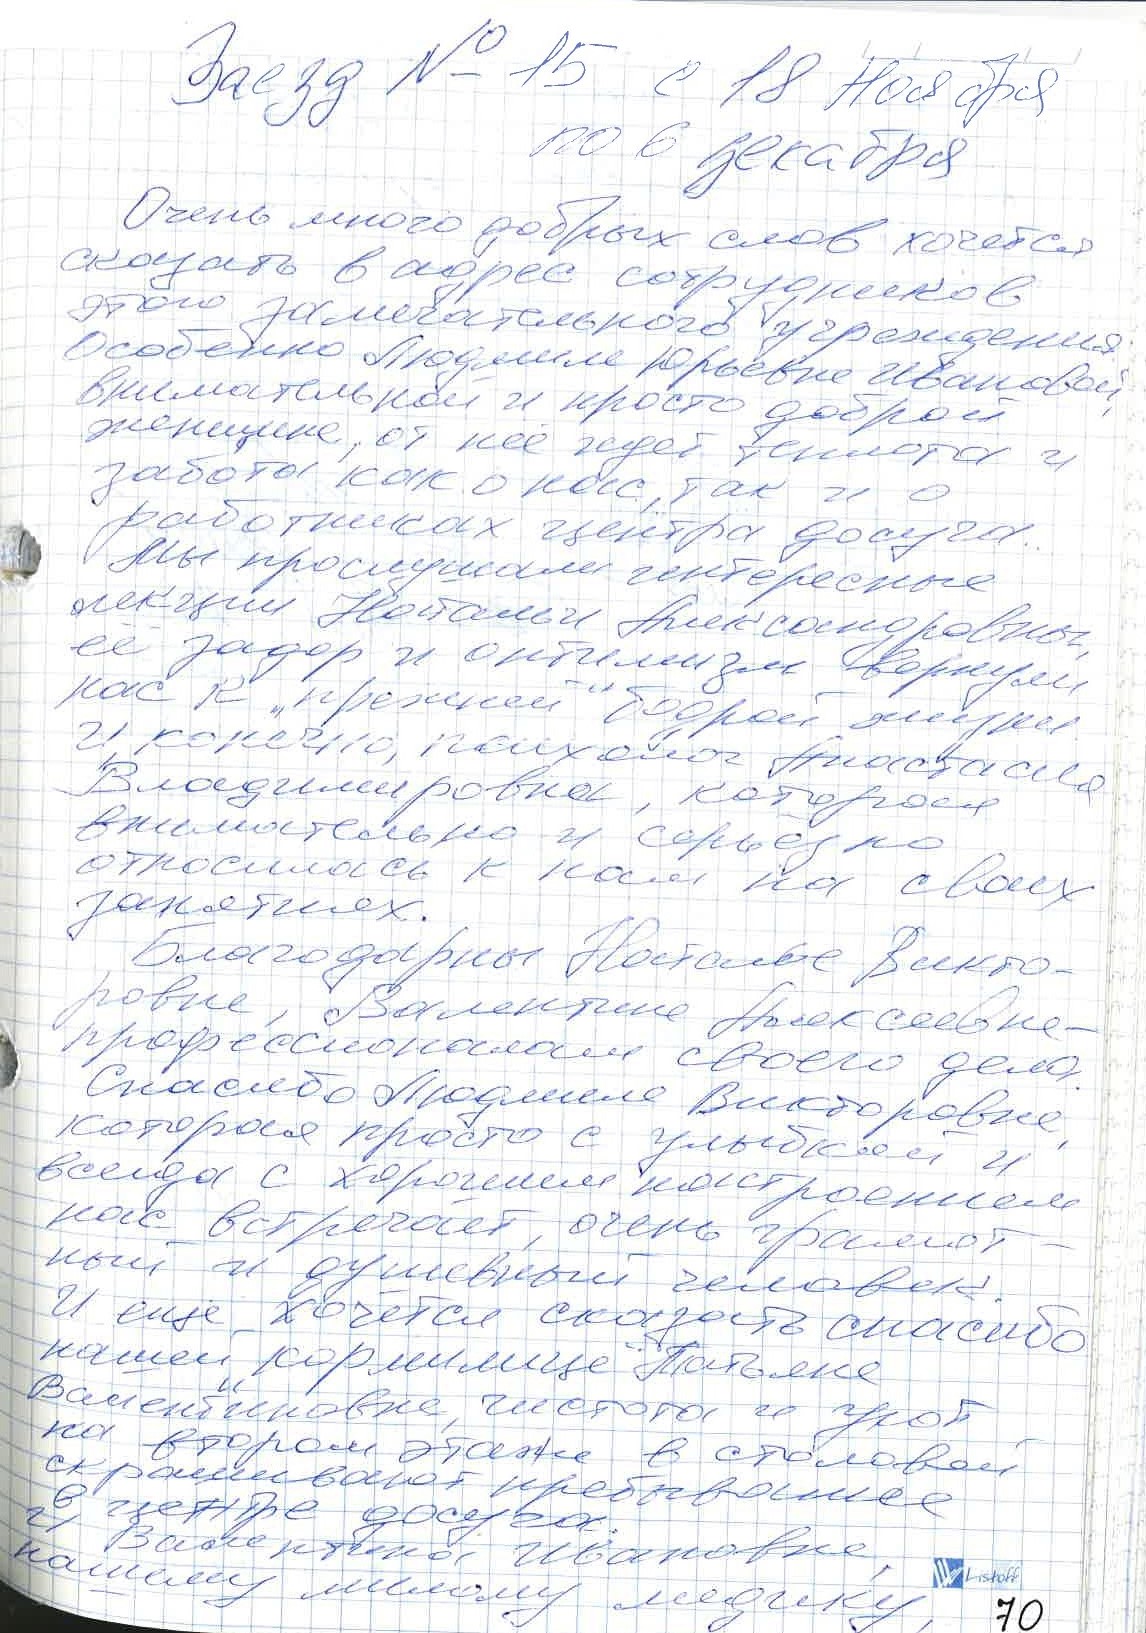 Заезд № 15 с 18 Ноября
по 6 декабря
Очень много добрых слов хочется
сказать в адрес сотрудников
этого замечательного учреждения.
Особенно Людмиле Юрьевне Ивановой,
внимательной и просто доброй
женщине, от неё идет теплота и
забота как о нас, так и о
работниках центра досуга.
Мы прослушали интересные
лекции Натальи Александровны,
её задор и оптимизм вернули
нас к "прежней" бодрой жизни
и, конечно, психолог Анастасия
Владимировна, которая
внимательно и серьёзно
относилась к нам на своих
занятиях.
Благодарны Наталье Викто-
ровне, Валентине Алексеевне-
профессионалам своего дела.
Спасибо Людмиле Викторовне,
которая просто с улыбкой и
всегда с хорошим настроением
нас встречает, очень грамот-
ный и душевный человек.
И еще хочется сказать спасибо
нашей "кормилице" Татьяне
Валентиновне, чистота и уют
на втором этаже в столовой
скрашивают пребывание
в центре досуга.
И Валентина Ивановне,
нашему милому медику,
Listoff
70